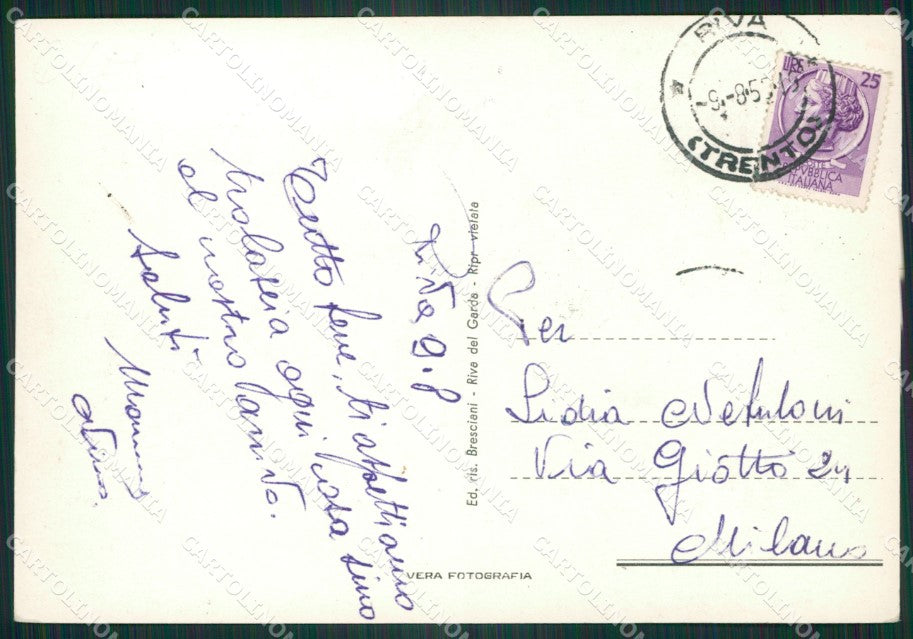 Riva 9.8
Tutto bene, ti aspettiamo
tralascia ogni cosa sino
al nostro arrivo.
Saluti
Mamma
RIVA
-9.-8.55
(TRENTO)
LIRE 25
POSTE
REPUBBLICA
ITALIANA
Ed. ris. Bresciani - Riva del Garda - Ripr vietata
VERA FOTOGRAFIA
Per
Lidia
Via Giotto 24
Milano
CARTOLINOMANIA